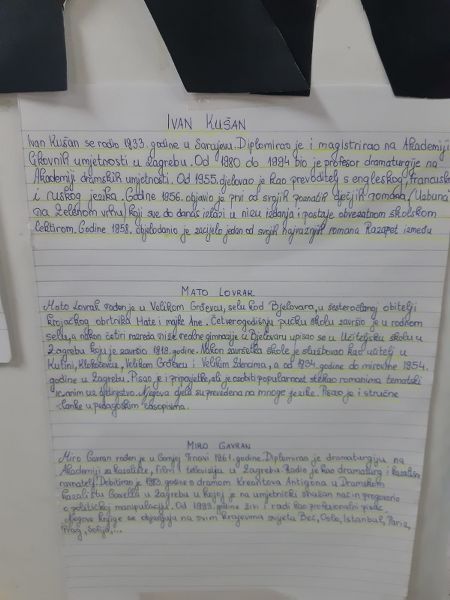 IVAN KUŠAN
Ivan Kušan se rodio 1933. godine u Sarajevu. Diplomirao je i magistrirao na Akademiji
likovnih umjetnosti u Zagrebu. Od 1980 do 1994 bio je profesor dramaturgije na
Akademiji dramskih umjetnosti. Od 1955. djelovao je kao prevoditelj s engleskog, francuskog
i ruskog jezika. Godine 1956. objavio je prvi od svojih poznatih dječjih romana, Uzbuna
na Zelenom vrhu, koji sve do danas izlazi u nizu izdanja i postaje obveznom školskom
lektirom. Godine 1958. objelodanio je zacijelo jedan od svojih najvažnijih romana Razapet između
MATO LOVRAK
Mato Lovrak rođen je u Velikom Grđevcu, selu kod Bjelovara, u šesteročlanoj obitelji
krojačkog obrtnika Mate i majke Ane. Četverogodišnju pučku školu završio je u rodnom
selu, a nakon četiri razreda niže realne gimnazije u Bjelovaru upisao se u Učiteljsku školu u
Zagrebu koju je završio 1919. godine. Nakon završetka škole je službovao kao učitelj u
Kutini, Klokočevcu, Velikom Grđevcu i Velikim Zdencima, a od 1934. godine do mirovine 1954.
godine u Zagrebu. Pisao je i pripovijetke, ali je osobiti popularnost stekao romanima tematski
vezanim uz djetinjstvo. Njegova djela su prevedena na mnoge jezike. Pisao je i stručne
članke u pedagoškim časopisima.
MIRO GAVRAN
Miro Gavran rođen je u Gornjoj Trnavi 1961. godine. Diplomirao je dramaturgiju na
Akademiji za kazalište, film i televiziju u Zagrebu. Radio je kao dramaturg i kazališni
ravnatelj. Debitirao je 1983. godine s dramom Kreontova Antigona u Dramskom
kazalištu Gavella u Zagrebu u kojoj je na umjetnički snažan način progovorio
o političkoj manipulaciji. Od 1993. godine živi i radi kao profesionalni pisac.
Njegove knjige se objavljuju na svim krajevima svijeta Beč, Oslo, Istanbul, Pariz,
Prag, Sofija,...